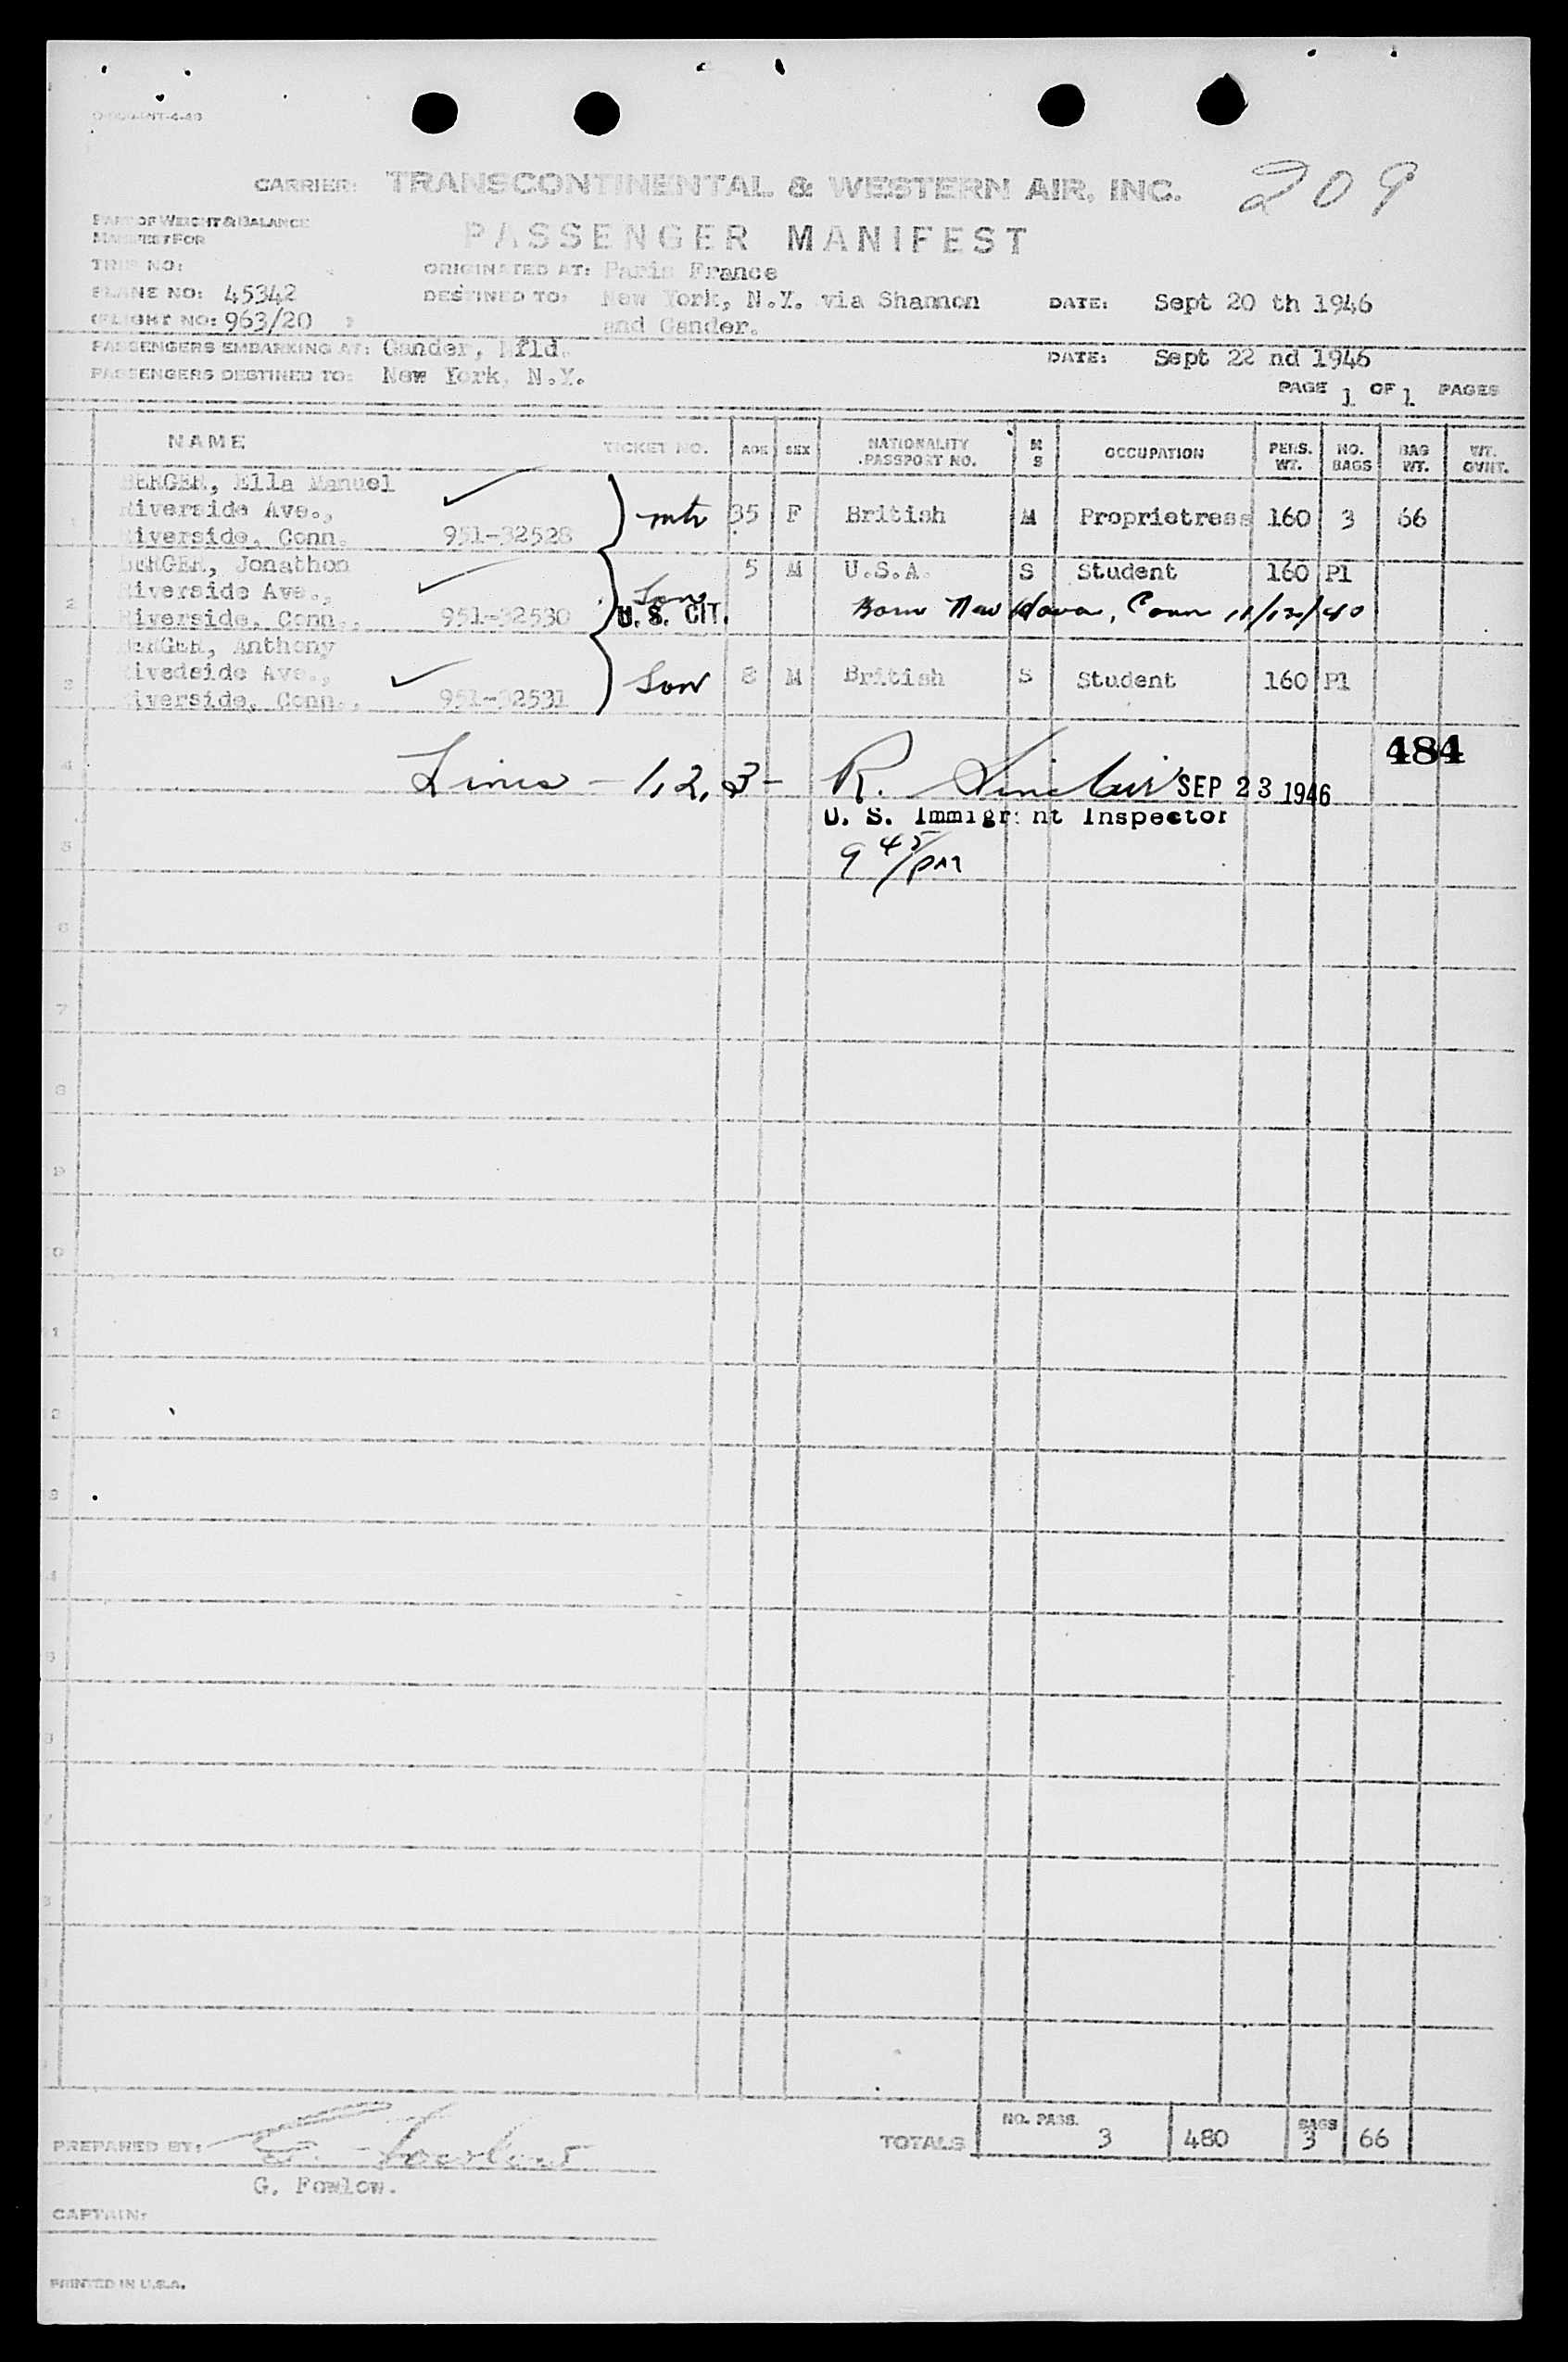 209
CARRIER: TRANSCONTINENTAL & WESTERN AIR, INC.
PART OF WEIGHT & BALANCE
MANIFEST FOR
PASSENGER MANIFEST
TRIP NO:
ORIGINATED AT: Paris France
PLANE NO: 45342
DESTINED TO: New York, N.Y. via Shannon
and Gander.
DATE: Sept 20 th 1946
FLIGHT NO: 963/20
PASSENGERS EMBARKING AT: Gander, Nfld.
DATE: Sept 22 nd 1946
PASSENGERS DESTINED TO: New York, N.Y.
PAGE 1 OF 1 PAGES
NAME TICKET NO. AGE SEX NATIONALITY PASSPORT NO. M S OCCUPATION PERS. WT. NO. BAGS BAG WT. WT. OVHT.
BERGER, Ella Manuel
Riverside Ave.,
1 mtr 35 F British M Proprietress 160 3 66
Riverside, Conn. 951-32528
BERGER, Jonathon 5 M U.S.A. S Student 160 P1
Riverside Ave.,
2 Son Born New Haven, Conn 11/12/40
Riverside, Conn., 951-32530 U. S. CIT.
BERGER, Anthony
Rivedside Ave.,
3 Son 8 M British S Student 160 P1
Riverside, Conn., 951-32531
484
4 Lines - 1, 2, 3 - R. Sinclair SEP 23 1946
U. S. Immigrant Inspector
5 9 45/pm
6
7
8
9
0
1
2
3
4
5
TOTALS NO. PASS. 3 480 BAGS 3 66
PREPARED BY: G. Fowlow
G. Fowlow.
CAPTAIN:
PRINTED IN U.S.A.